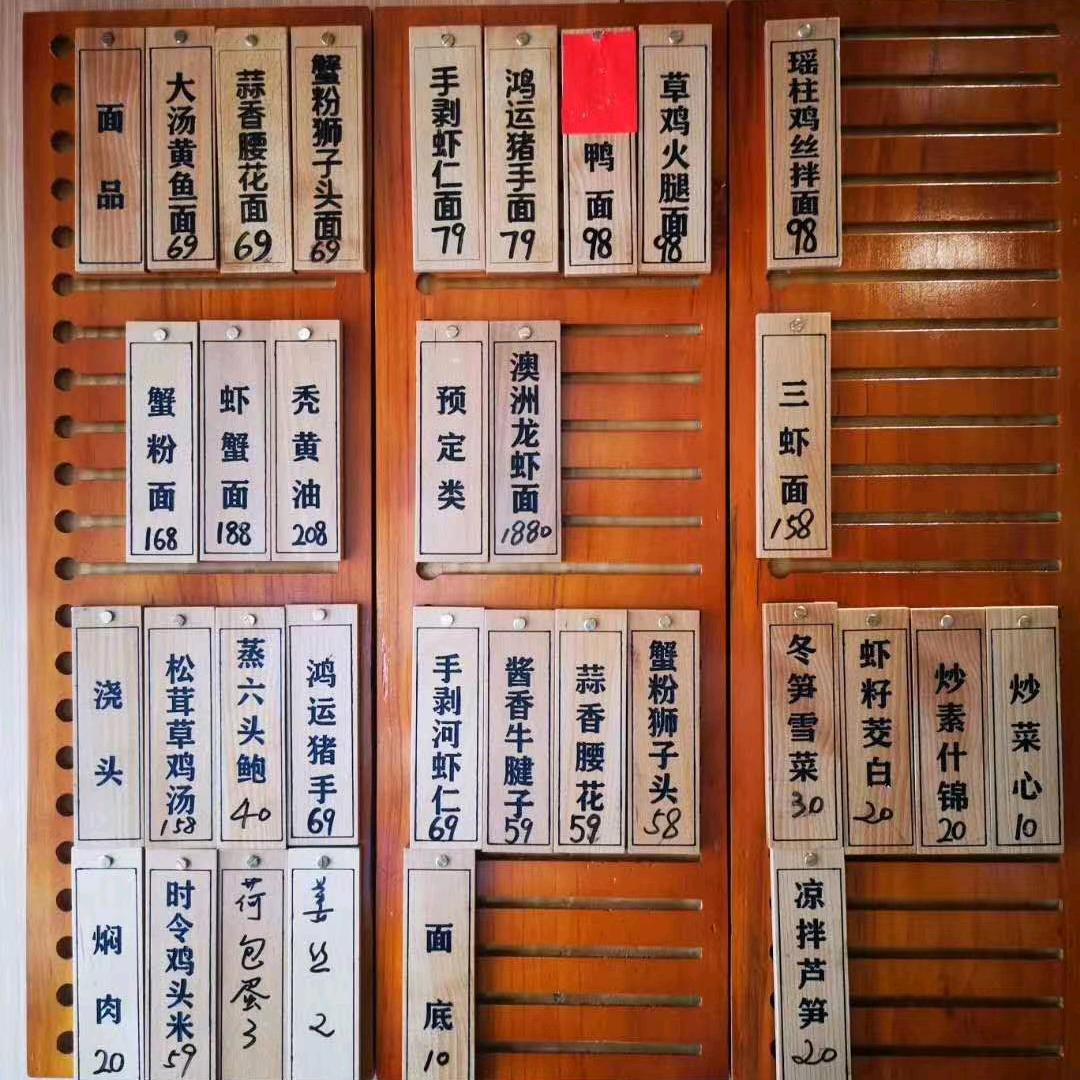 面品
大汤黄鱼面 69
蒜香腰花面 69
蟹粉狮子头面 69
手剥虾仁面 79
鸿运猪手面 79
鸭面 98
草鸡火腿面 98
瑶柱鸡丝拌面 98
蟹粉面 168
虾蟹面 188
秃黄油 208
预定类
澳洲龙虾面 1880
三虾面 158
浇头
松茸草鸡汤 158
蒸六头鲍 40
鸿运猪手 69
手剥河虾仁 69
酱香牛腱子 59
蒜香腰花 59
蟹粉狮子头 58
冬笋雪菜 30
虾籽茭白 20
炒素什锦 20
炒菜心 10
焖肉 20
时令鸡头米 59
荷包蛋 3
姜丝 2
面底 10
凉拌芦笋 20